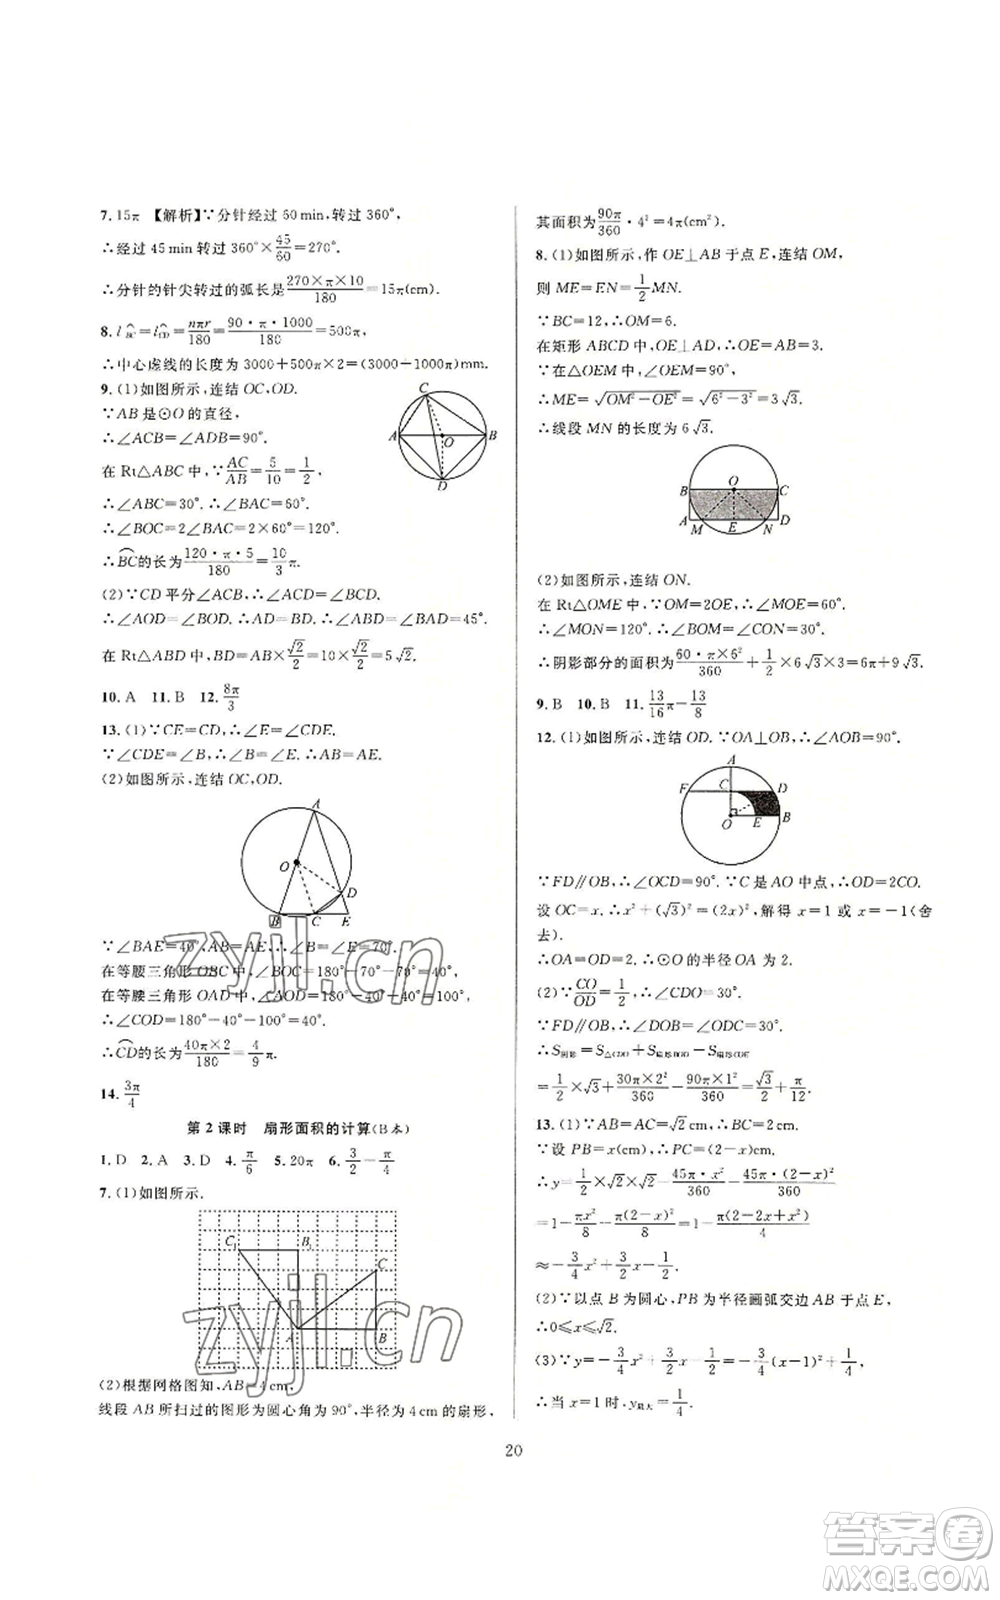 7. 15π 【解析】∵分针经过 60 min,转过 360°,
∴经过 45 min 转过 360°×45/60=270°.
∴分针的针尖转过的弧长是 270×π×10/180=15π(cm).
8. l⌒BC=l⌒CD=nπr/180=90·π·1000/180=500π,
∴中心虚线的长度为 3000+500π×2=(3000+1000π)mm.
9. (1)如图所示,连结 OC,OD.
∵AB 是⊙O 的直径,
∴∠ACB=∠ADB=90°.
在 Rt△ABC 中,∵AC/AB=5/10=1/2,
∴∠ABC=30°.∴∠BAC=60°.
∴∠BOC=2∠BAC=2×60°=120°.
∴⌒BC的长为120·π·5/180=10/3π.
C
A
O
B
D
(2)∵CD 平分∠ACB,∴∠ACD=∠BCD.
∴∠AOD=∠BOD.∴AD=BD.∴∠ABD=∠BAD=45°.
在 Rt△ABD 中,BD=AB×√2/2=10×√2/2=5√2.
10. A 11. B 12. 8π/3
13. (1)∵CE=CD,∴∠E=∠CDE.
∵∠CDE=∠B,∴∠E=∠B.∴AB=AE.
(2)如图所示,连结 OC,OD.
A
O
D
B
C
E
∵∠BAE=40°,AB=AE,∴∠B=∠E=70°.
在等腰三角形 OBC 中,∠BOC=180°-70°-70°=40°,
在等腰三角形 OAD 中,∠AOD=180°-40°-40°=100°,
∴∠COD=180°-40°-100°=40°.
∴⌒CD的长为40π×2/180=4/9π.
14. 3π/4
第 2 课时 扇形面积的计算(B本)
1. D 2. A 3. D 4. π/6 5. 20π 6. 3/2-π/4
7. (1)如图所示.
C₁
B₁
C
A
B
(2)根据网格图知,AB=4 cm,
线段 AB 所扫过的图形为圆心角为 90°,半径为 4 cm 的扇形,
其面积为90π/360·4²=4π(cm²).
8. (1)如图所示,作 OE⊥AB 于点 E,连结 OM,
则 ME=EN=1/2MN.
∵BC=12,∴OM=6.
在矩形 ABCD 中,OE⊥AD,∴OE=AB=3.
∵在△OEM 中,∠OEM=90°,
∴ME=√OM²-OE²=√6²-3²=3√3.
∴线段 MN 的长度为 6√3.
O
B
C
A
M
E
N
D
(2)如图所示,连结 ON.
在 Rt△OME 中,∵OM=2OE,∴∠MOE=60°.
∴∠MON=120°.∴∠BOM=∠CON=30°.
∴阴影部分的面积为60·π×6²/360+1/2×6√3×3=6π+9√3.
9. B 10. B 11. 13/16π-13/8
12. (1)如图所示,连结 OD.∵OA⊥OB,∴∠AOB=90°.
A
F
C
D
O
E
B
∵FD∥OB,∴∠OCD=90°.∵C 是 AO 中点,∴OD=2CO.
设 OC=x.∴x²+(√3)²=(2x)²,解得 x=1 或 x=-1(舍
去).
∴OA=OD=2.∴⊙O 的半径 OA 为 2.
(2)∵CO/OD=1/2,∴∠CDO=30°.
∵FD∥OB,∴∠DOB=∠ODC=30°.
∴S阴影=S△CDO+S扇形BOD-S扇形COE
=1/2×√3+30π×2²/360-90π×1²/360=√3/2+π/12.
13. (1)∵AB=AC=√2 cm,∴BC=2 cm.
∵设 PB=x(cm),∴PC=(2-x)cm.
∴y=1/2×√2×√2-45π·x²/360-45π·(2-x)²/360
=1-πx²/8-π(2-x)²/8=1-π(2-2x+x²)/4
≈-3/4x²+3/2x-1/2.
(2)∵以点 B 为圆心,PB 为半径画弧交边 AB 于点 E,
∴0≤x≤√2.
(3)∵y=-3/4x²+3/2x-1/2=-3/4(x-1)²+1/4,
∴当 x=1 时,y最大=1/4.
20
zyjl.cn
zyjl.cn
答案圈
MXQE.COM